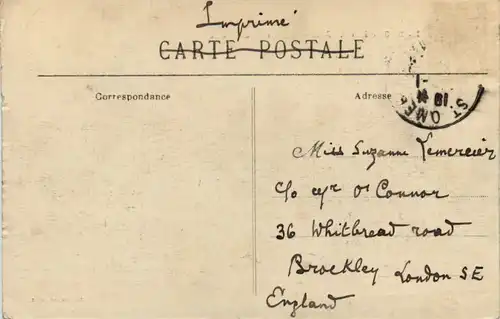 Imprimé
CARTE POSTALE
Correspondance
Adresse
ST OMER
18
Miss Suzanne Lemercier
c/o O'Connor
36 Whitbread road
Brockley London SE
England